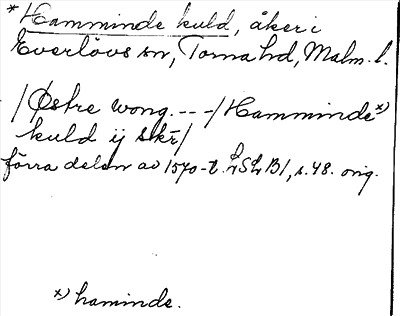 *Hamminde kuld, åker i
Everlövs sn, Torna hd, Malm. l.
/Østre wong. - - -/ Hamminde x)
kuld ij skr̄/
förra delen av 1570-t. LSLB1, s. 48. orig.
x) haminde.